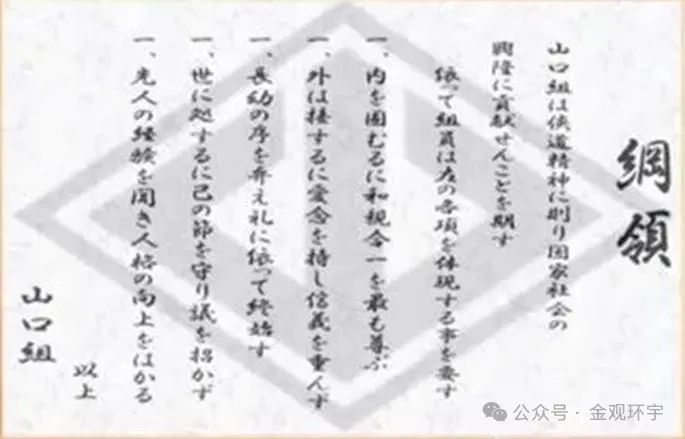 綱領
山口組は侠道精神に則り国家社会の
興隆に貢献せんことを期す
依って組員は左の各項を体現する事を要す
一、内を固むるに和親合一を最も尊ぶ
一、外は接するに愛念を持し信義を重んず
一、長幼の序を弁え礼に依って終始す
一、世に処するに己の節を守り譏を招かず
一、先人の経験を聞き人格の向上をはかる
以上
山口組
公众号·金观环宇